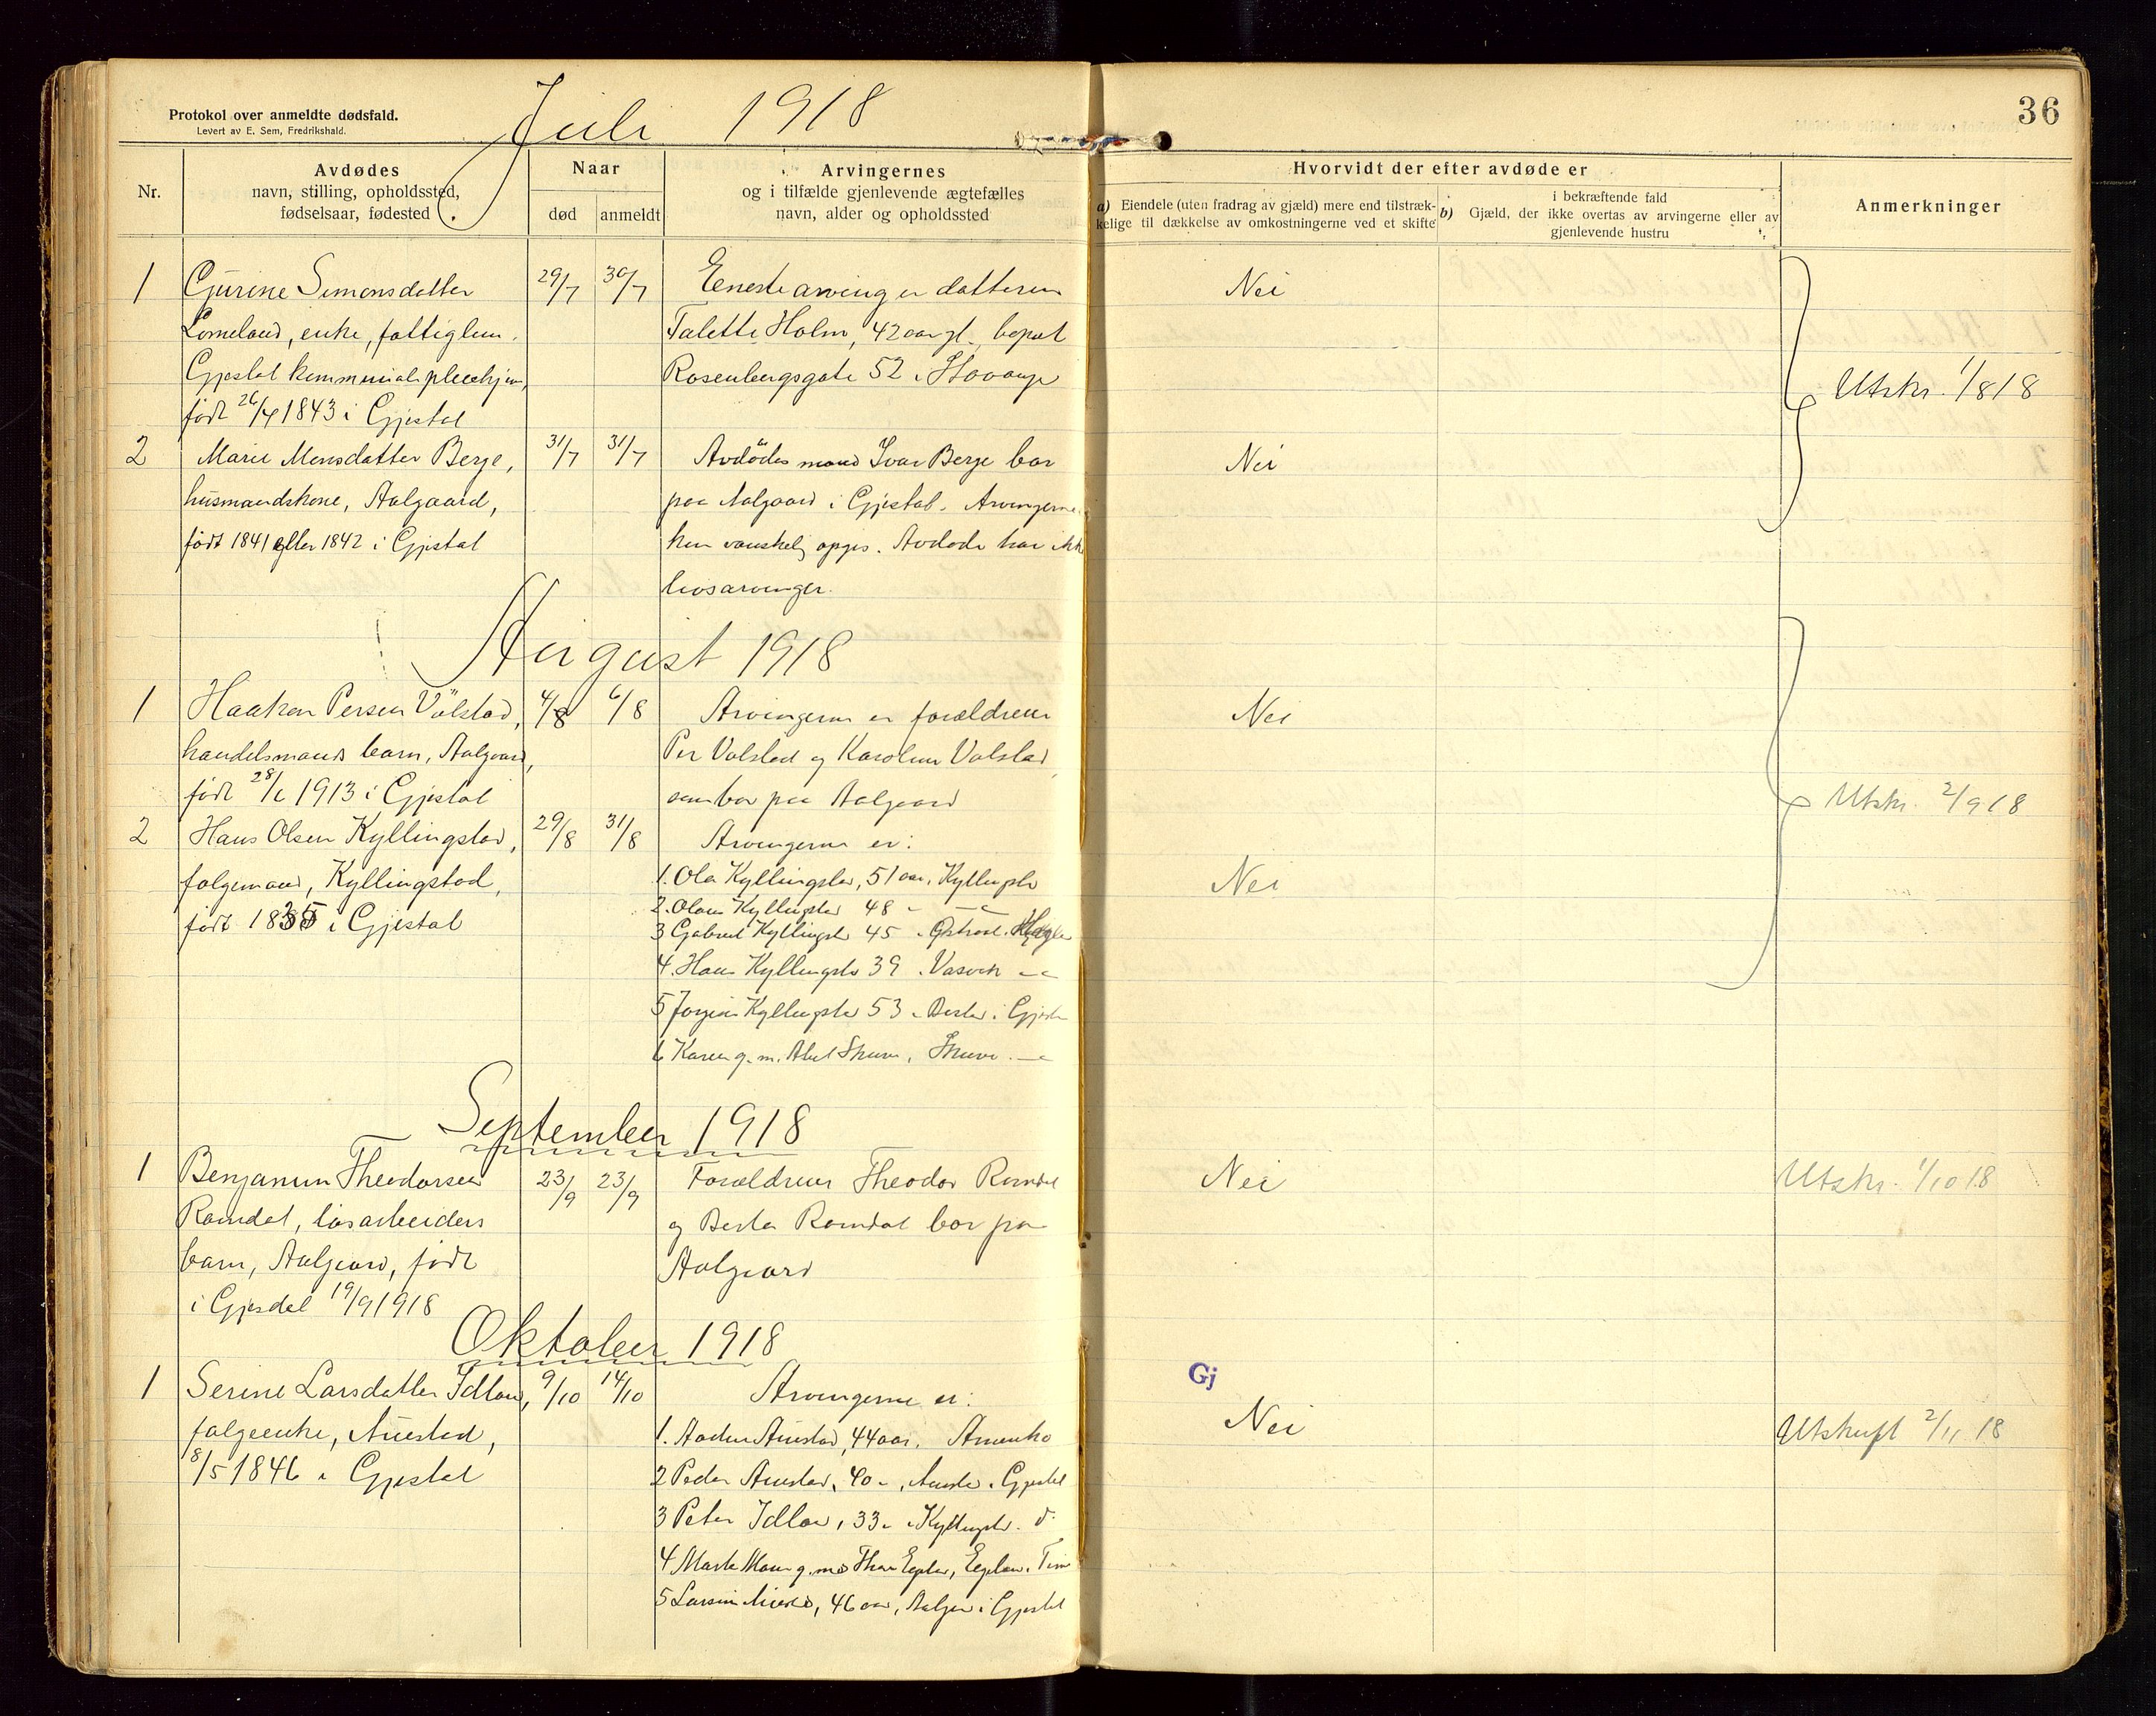 Protokol over anmeldte dødsfald.
Levert av E. Sem, Fredrikshald.
Juli 1918
36
Nr.
Avdødes
navn, stilling, opholdssted,
fødselsaar, fødested
Naar
død
anmeldt
Arvingernes
og i tilfælde gjenlevende ægtefælles
navn, alder og opholdssted
Hvorvidt der efter avdøde er
a) Eiendele (uten fradrag av gjæld) mere end tilstræk-
kelige til dækkelse av omkostningerne ved et skifte
i bekræftende fald
b) Gjæld, der ikke overtas av arvingerne eller av
gjenlevende hustru
Anmerkninger
1 Gurine Simonsdatter
Lomeland, enke, fattiglem.
Gjestal kommunale pleiehjem,
født 26/4 1843 i Gjestal
29/7 30/7
Eneste arving er datteren
Talette Holm, 42 aar gl., bopæl
Rosenbergsgate 52 i Stavanger
Nei
Utskr. 1/8 18
2 Marie Monsdatter Berge,
husmandskone, Aalgaard,
født 1841 eller 1842 i Gjestal
31/7 31/7
Avdødes mand Ivar Berge bor
paa Aalgaard i Gjestal. Arvingerne
kan vanskelig opgis. Avdøde har ikke
livsarvinger.
Nei
August 1918
1 Haakon Persen Vølstad,
handelsmands barn, Aalgaard,
født 28/6 1913 i Gjestal
4/8 6/8
Arvingerne er forældrene
Per Vølstad og Karoline Vølstad
som bor paa Aalgaard
Nei
Utskr. 2/9 18
2 Hans Olsen Kyllingstad,
følgemand, Kyllingstad,
født 1835 i Gjestal
29/8 31/8
Arvingerne er:
1. Ola Kyllingstad, 51 aar, Kyllingstad
2. Olaus Kyllingstad 48
3 Gabriel Kyllingstad 45
4. Hans Kyllingstad 39
5 Kyllingstad 53 i Gjestal
6 Karen g. m. Abel
Nei
September 1918
1 Benjamin Theodorsen
Ramdal, løsarbeiders
barn, Aalgaard, født
i Gjesdal 19/9 1918
23/9 23/9
Forældrene Theodor Ramdal
og Berta Ramdal bor paa
Aalgaard
Nei
Utskr. 1/10 18
Oktober 1918
1 Serine Larsdatter Idland,
følgeenke, Auestad,
8/5 1846 i Gjestal
9/10 14/10
Arvingerne er:
1. Auestad, 44 aar, Amerika
2 Peder Auestad, 40, Auestad i Gjestal
3 Peter Idland, 33, Kyllingstad
4 g. m.
5 46 aar, Aalgaard i Gjestal
Gj
Nei
Utskrift 2/11 18